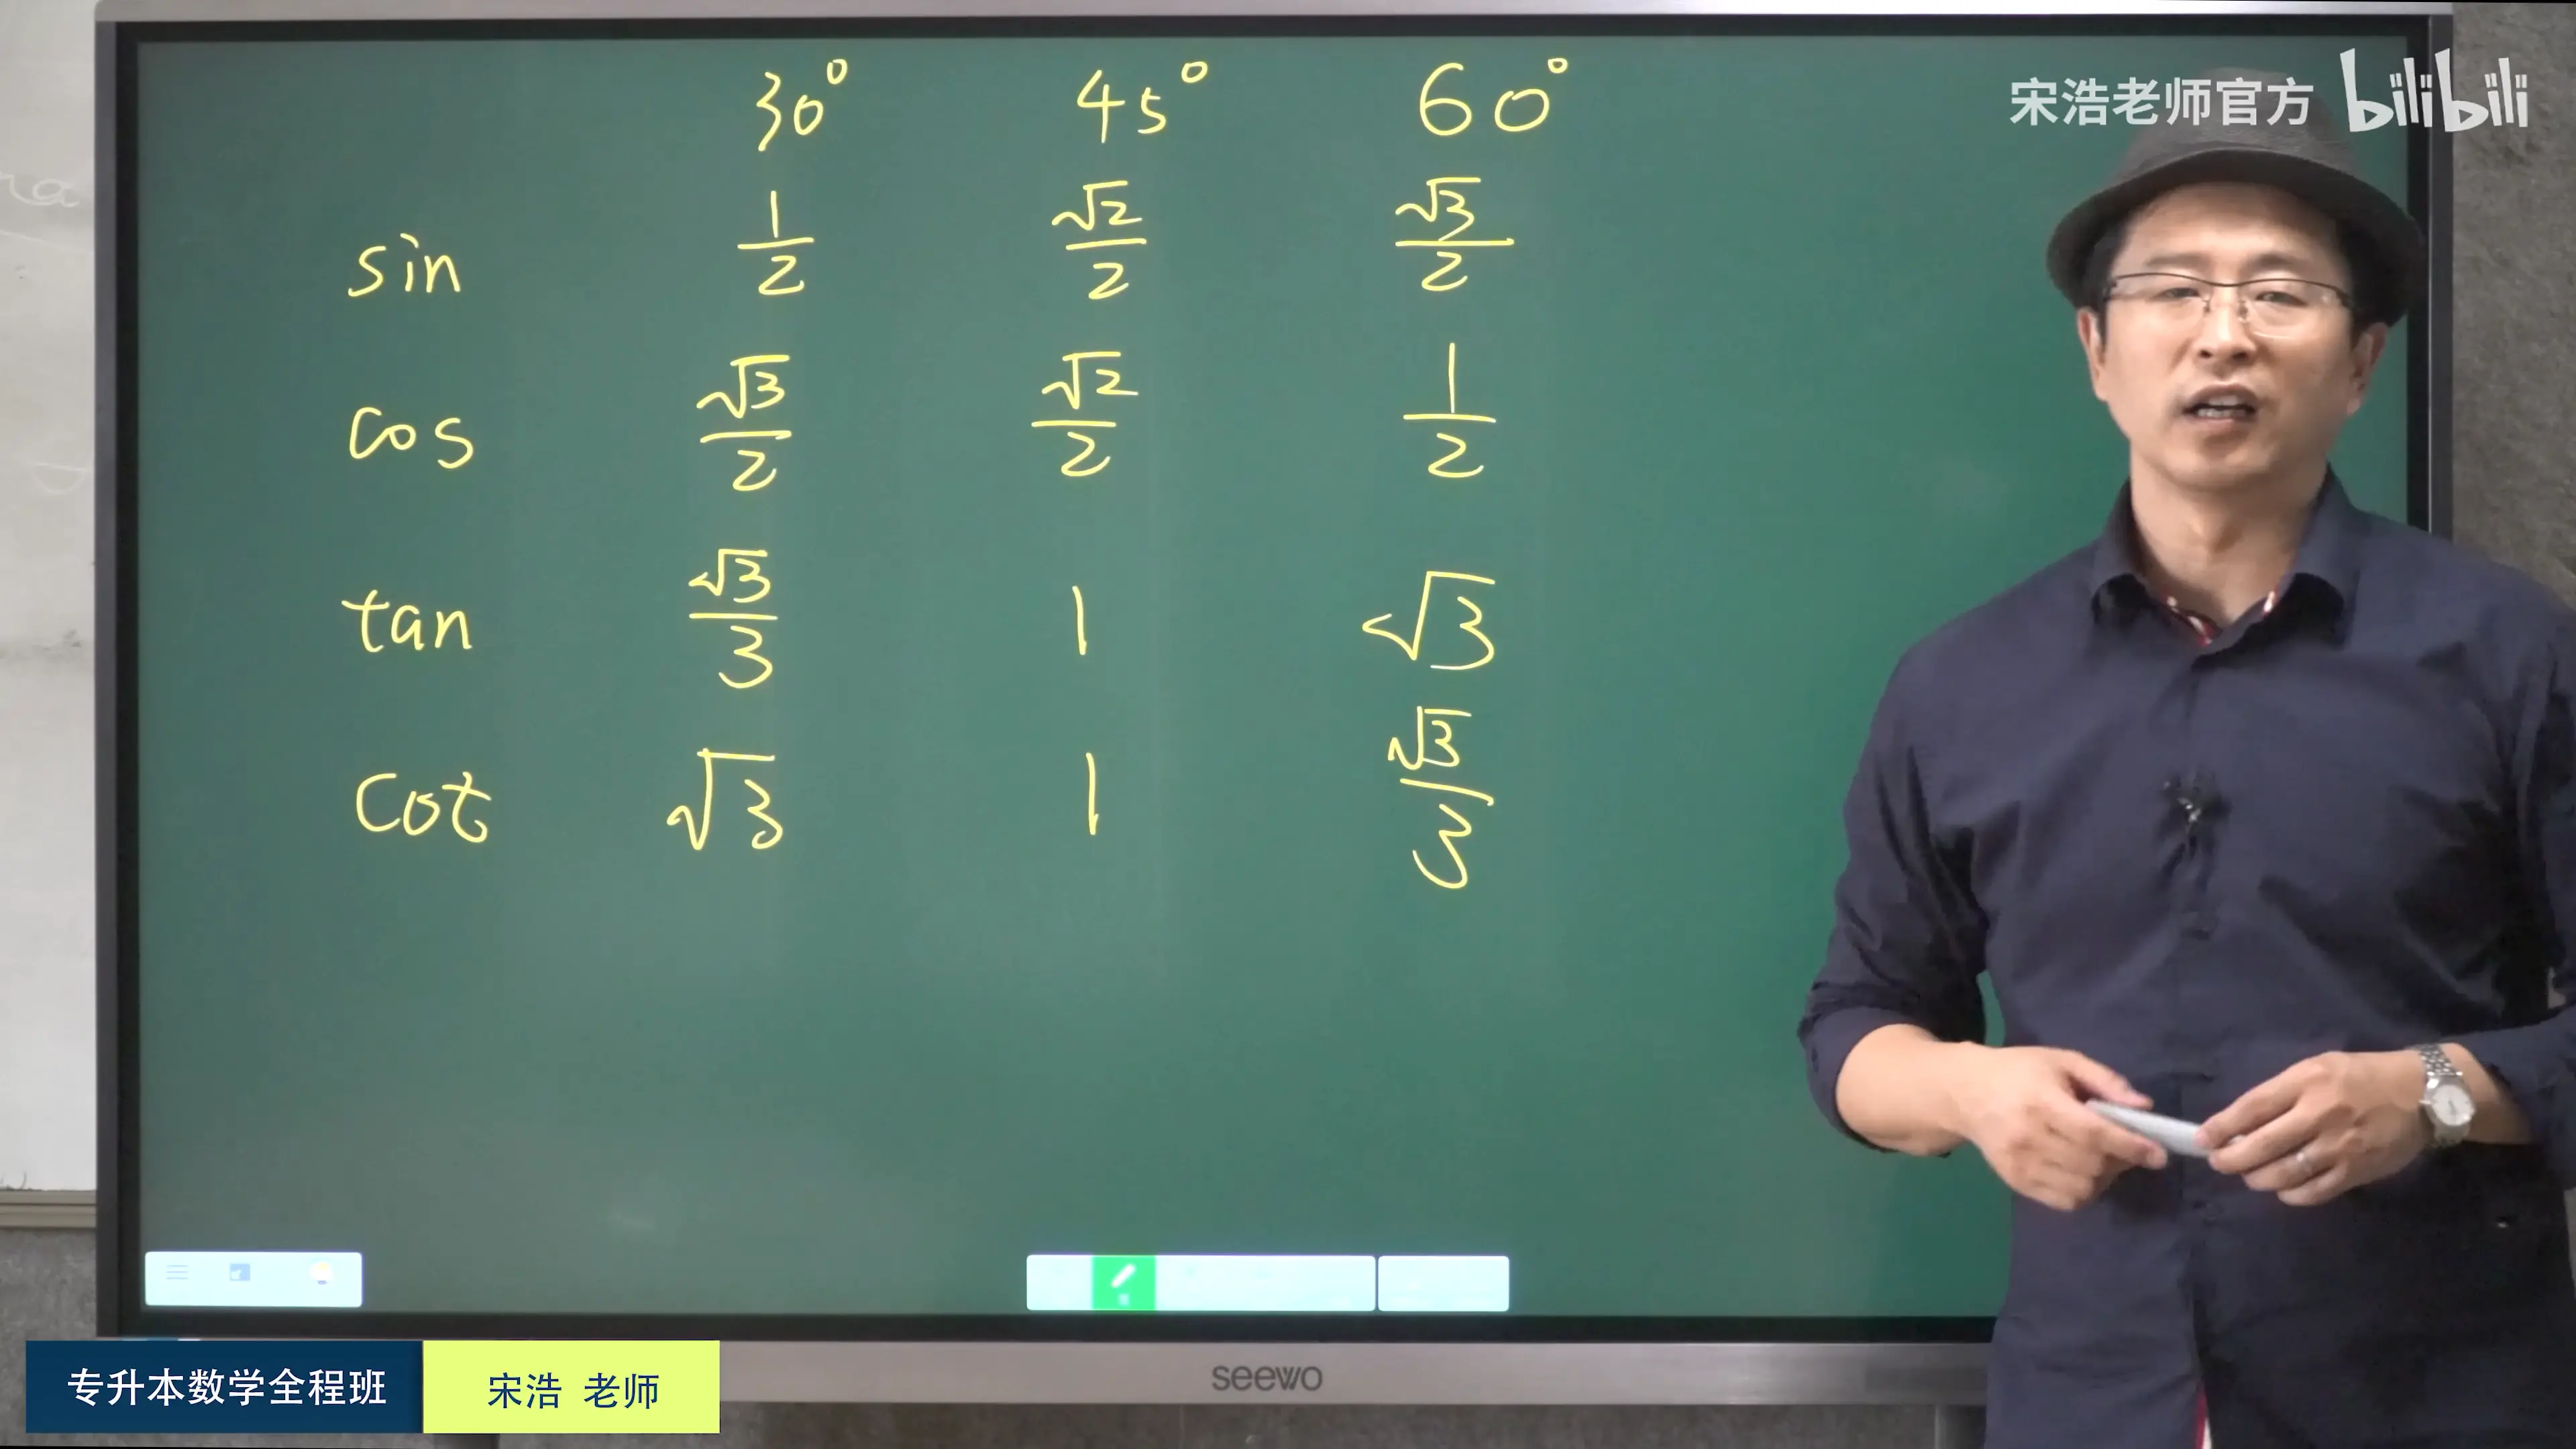 宋浩老师官方 bilibili
30° 45° 60°
sin 1/2 √2/2 √3/2
cos √3/2 √2/2 1/2
tan √3/3 1 √3
cot √3 1 √3/3
seewo
专升本数学全程班 宋浩 老师